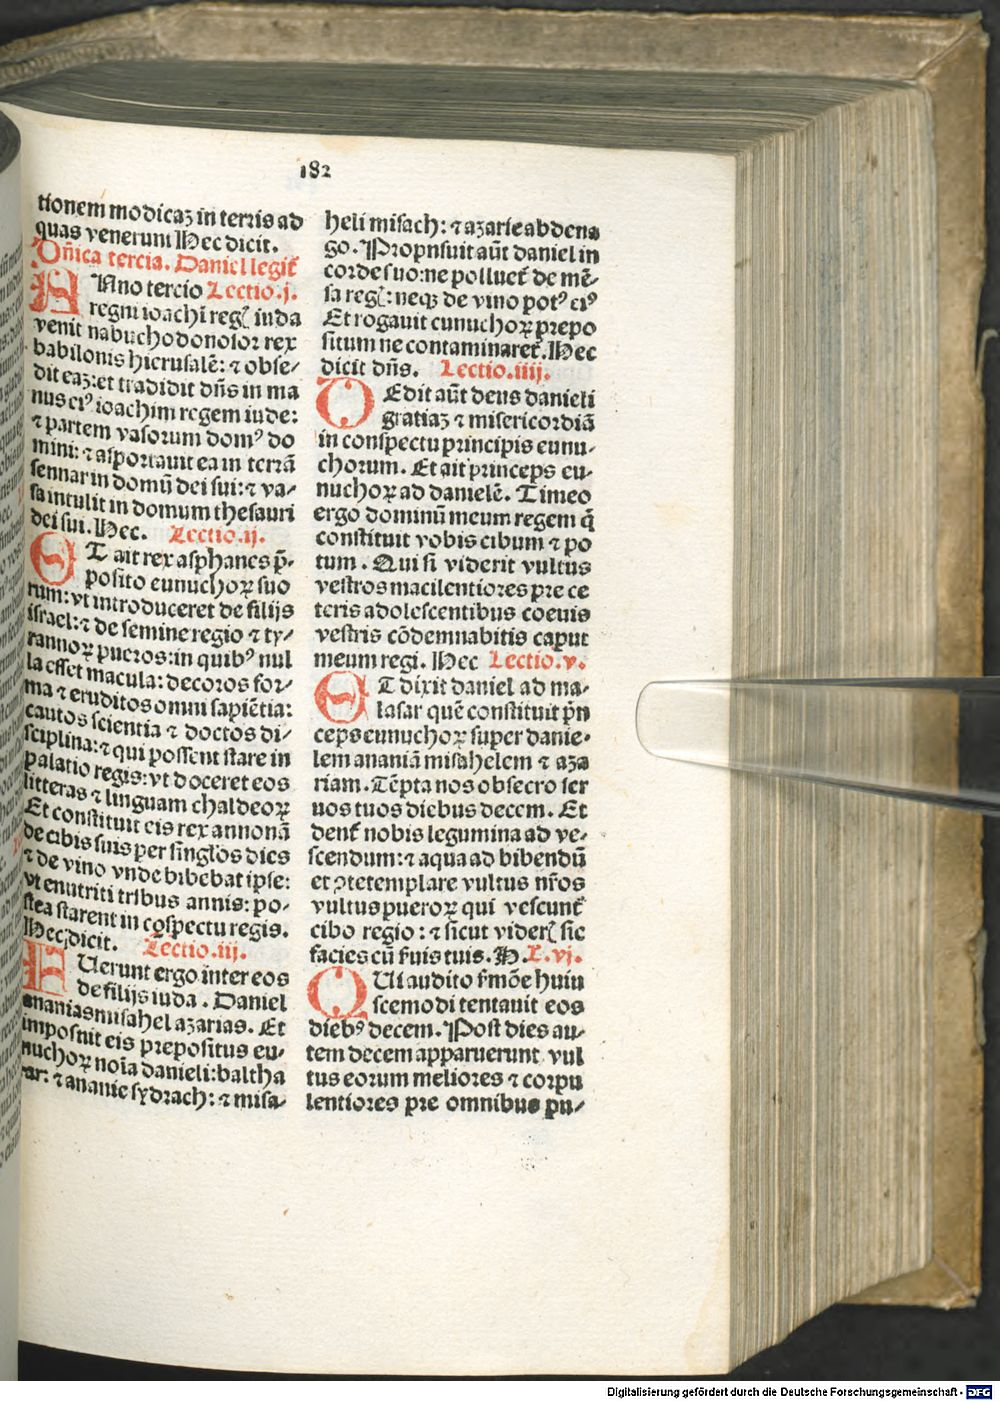 182
tionem modicaʒ in terris ad
quas venerunt Hec dicit.
Dñica tercia. Daniel legit᷑
ANno tercio Lectio.j.
regni ioachī reg̃ iuda
venit nabuchodonosor rex
babilonis hierusalē: ⁊ obse-
dit eaʒ: et tradidit dñs in ma
nus eiꝰ ioachim regem iude:
⁊ partem vasorum domꝰ do
mini: ⁊ asportauit ea in terrā
sennar in domū dei sui: ⁊ va-
sa intulit in domum thesauri
dei sui. Hec. Lectio.ij.
ET ait rex asphanes p̄-
posito eunuchoꝝ suo
rum: vt introduceret de filijs
israel: ⁊ de semine regio ⁊ ty-
rannoꝝ pueros: in quibꝰ nul
la esset macula: decoros for-
ma ⁊ eruditos omni sapiētia:
cautos scientia ⁊ doctos di-
sciplina: ⁊ qui possent stare in
palatio regis: vt doceret eos
litteras ⁊ linguam chaldeoꝝ
Et constituit eis rex annonā
de cibis suis per singl̓os dies
⁊ de vino vnde bibebat ipse:
vt enutriti tribus annis: po-
stea starent in cōspectu regis.
Hec dicit. Lectio.iij.
FUerunt ergo inter eos
de filijs iuda. Daniel
ananias misahel azarias. Et
imposuit eis prepositus eu-
nuchoꝝ noīa danieli: baltha
sar: ⁊ ananie sydrach: ⁊ misa-
heli misach: ⁊ azarie abdena
go. Proposuit aūt daniel in
corde suo: ne polluet᷑ de mē-
sa reg̃: neqʒ de vino potꝰ eiꝰ
Et rogauit eunuchoꝝ prepo
situm ne contaminaret᷑. Hec
dicit dñs. Lectio.iiij.
DEdit aūt deus danieli
gratiaʒ ⁊ misericordiā
in conspectu principis eunu-
chorum. Et ait princeps eu-
nuchoꝝ ad danielē. Timeo
ergo dominū meum regem q̄
constituit vobis cibum ⁊ po
tum. Qui si viderit vultus
vestros macilentiores pre ce
teris adolescentibus coeuis
vestris cōdemnabitis caput
meum regi. Hec Lectio.v.
ET dixit daniel ad ma-
lasar quē constituit pn̄
ceps eunuchoꝝ super danie-
lem ananiā misahelem ⁊ aza
riam. Tēpta nos obsecro ser
uos tuos diebus decem. Et
dent᷑ nobis legumina ad ve-
scendum: ⁊ aqua ad bibendū
et ꝯtemplare vultus nr̄os
vultus pueroꝝ qui vescunt᷑
cibo regio: ⁊ sicut vider̃ sic
facies cū fuis tuis. H. L.vj.
QUi audito s̓mōe huiu
scemodi tentauit eos
diebꝰ decem. Post dies au-
tem decem apparuerunt vul
tus eorum meliores ⁊ corpu
lentiores pre omnibus pu-
Digitalisierung gefördert durch die Deutsche Forschungsgemeinschaft - DFG